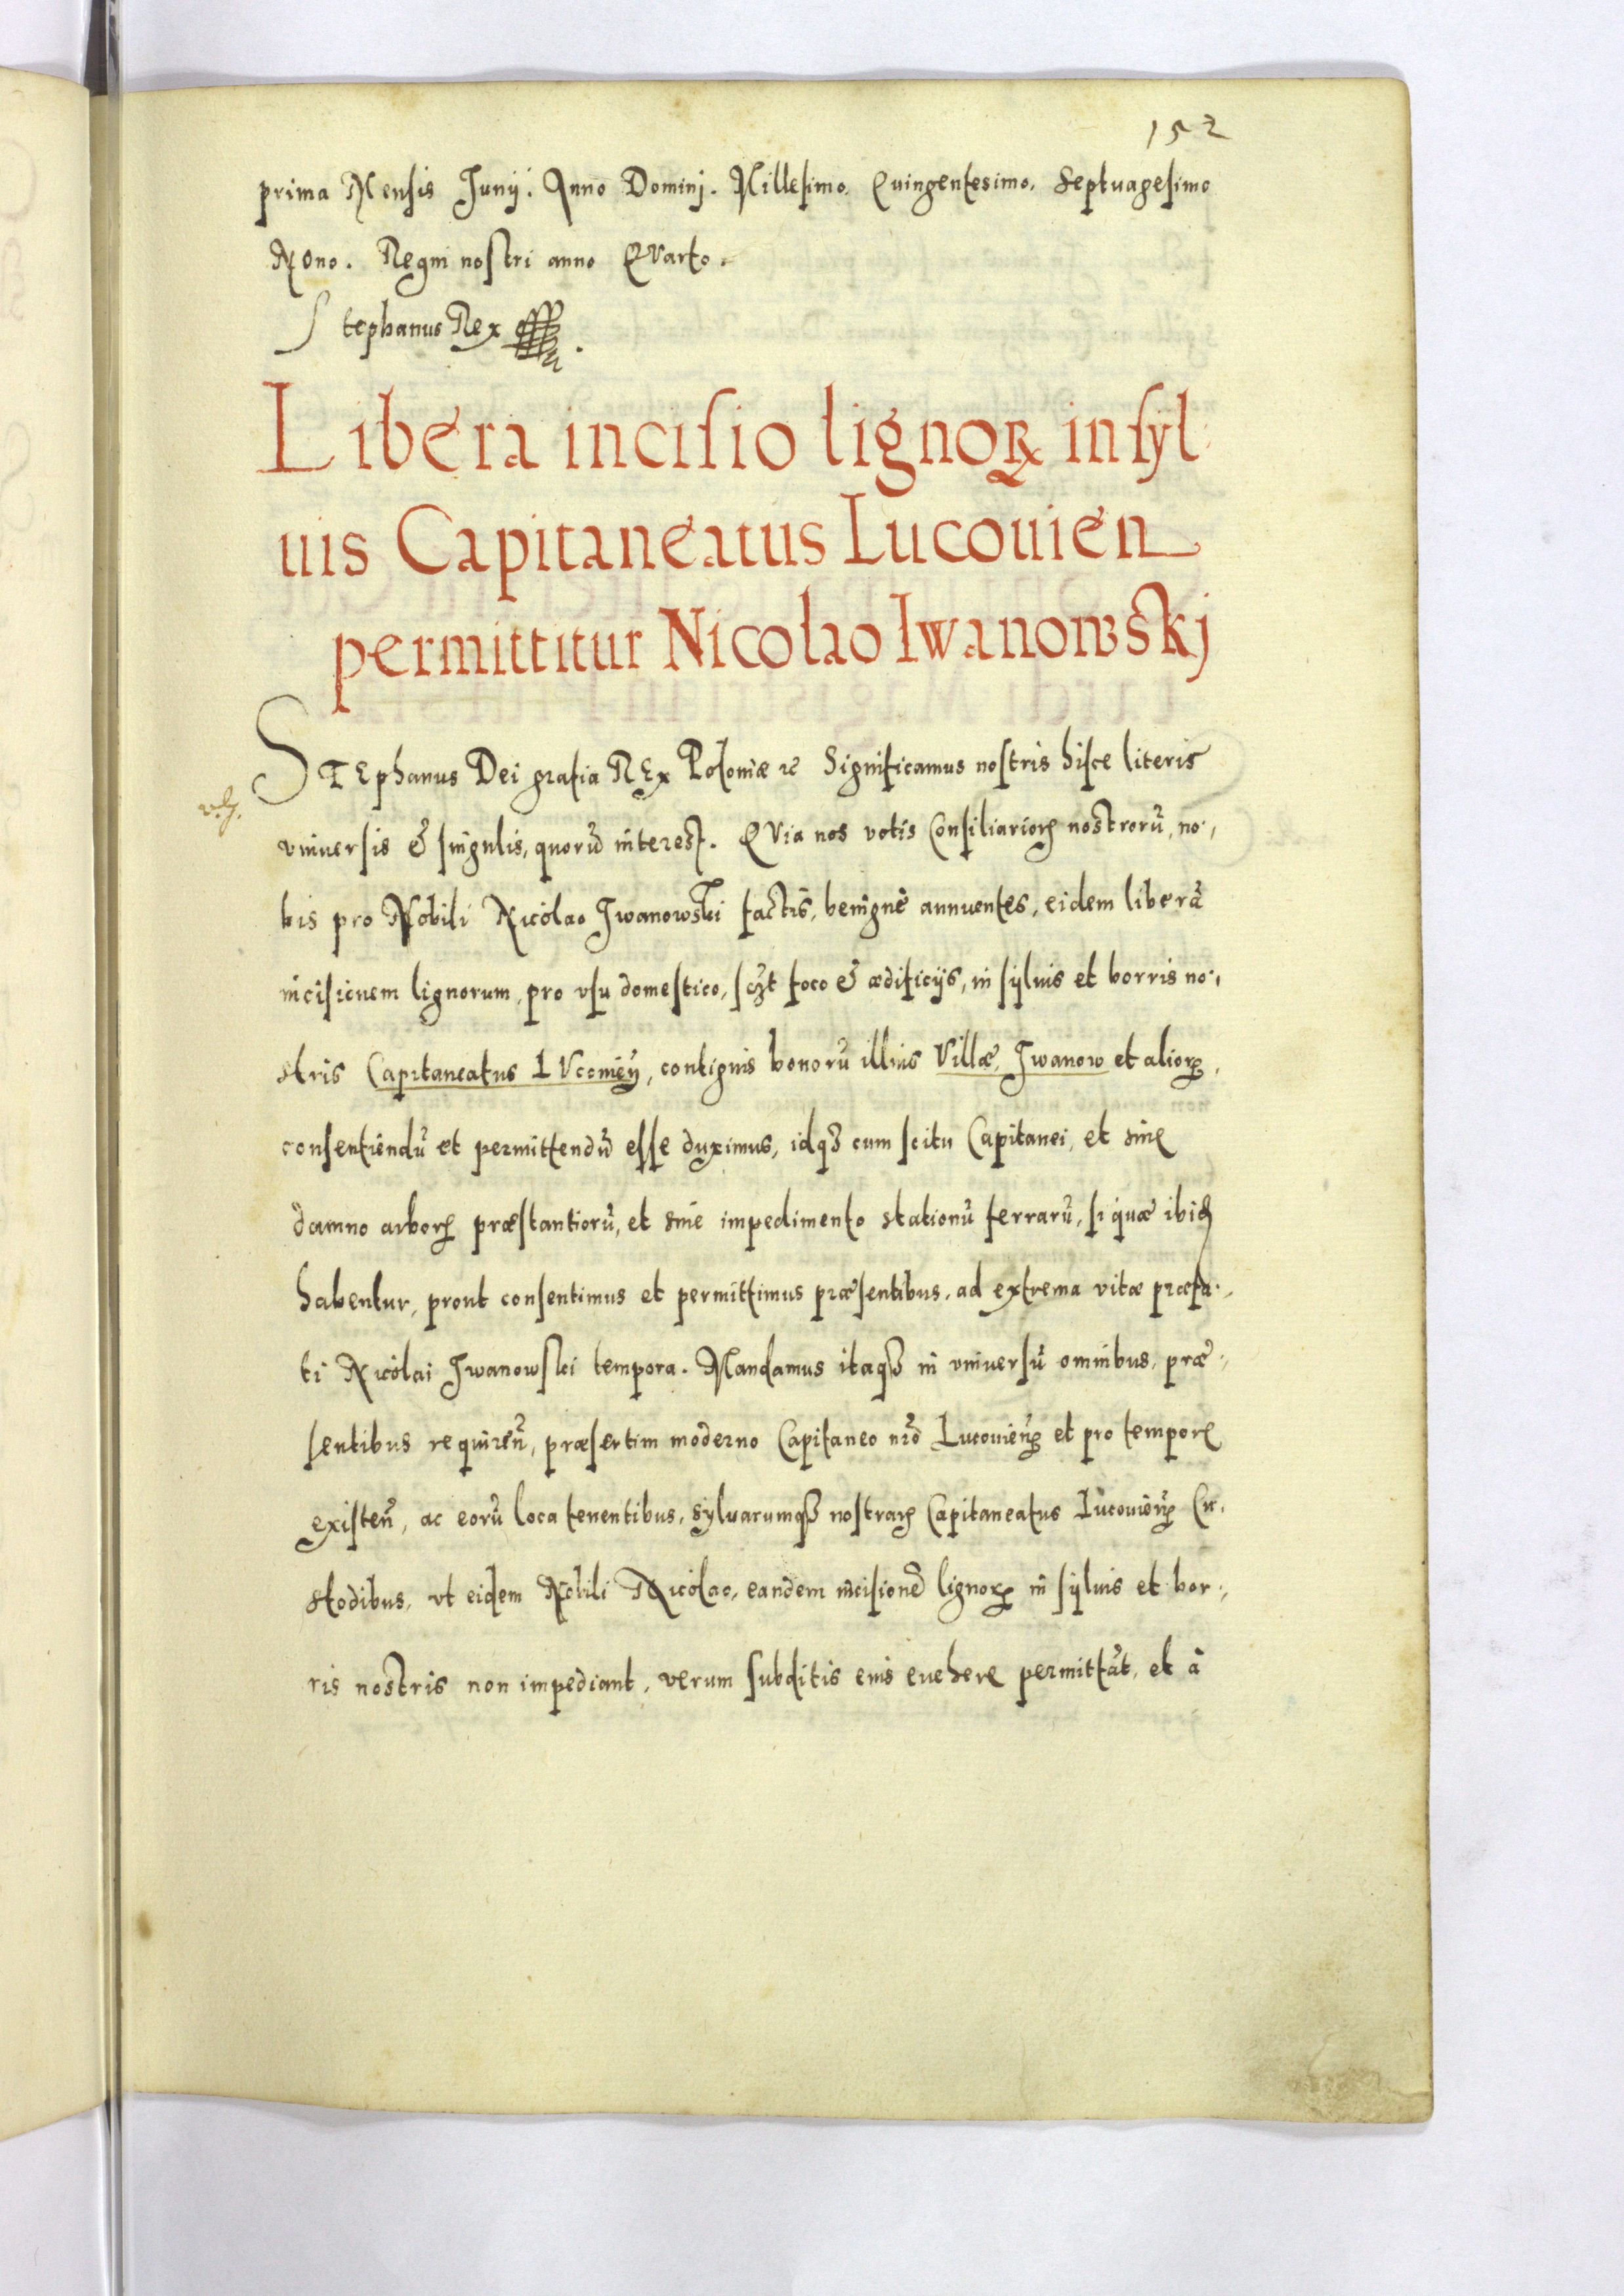 152
prima Mensis Junÿ. Anno Dominj. Millesimo. Quingentesimo. Septuagesimo
Nono. Regni nostri anno QVarto.
Stephanus Rex
Libera incisio lignoꝝ in syl
uis Capitaneatus Lucouien
permittitur Nicolao Iwanowskj
STEphanus Dei gratia REx Poloniæ ꝛc Significamus nostris hisce literis
vniuersis & singulis, quorū interest. QVia nos votis Consiliarioꝝ nostrorū, no.,
bis pro Nobili Nicolao Jwanowski factis, benignè annuentes, eidem liberā
incisionem lignorum, pro vsu domestico, sczt foco & ædificijs, in syluis et borris no.,
stris Capitaneatus LVcouieñ, contiguis bonorū illius Villæ, Jwanow et alioꝝ,
consentiendū et permittendū esse duximus, idqꝫ cum scitu Capitanei, et sine
damno arboꝝ præstantiorū, et sine impedimento stationū ferrarū, si quæ ibidꝫ
habentur, prout consentimus et permittimus præsentibus, ad extrema vitæ præfa.,
ti Nicolai Jwanowski tempora. Mandamus itaqꝫ in vniuersū omnibus, præ.,
sentibus requireñ, præsertim moderno Capitaneo nrō Lucouieñ et pro tempore
existeñ, ac eorū loca tenentibus, syluarumqꝫ nostraꝝ Capitaneatus Lucouieñ Cu.
stodibus, vt eidem Nobili Nicolao, eandem incisionē lignoꝝ in syluis et bor.,
ris nostris non impediant, verum subditis eius euehere permittāt, et à